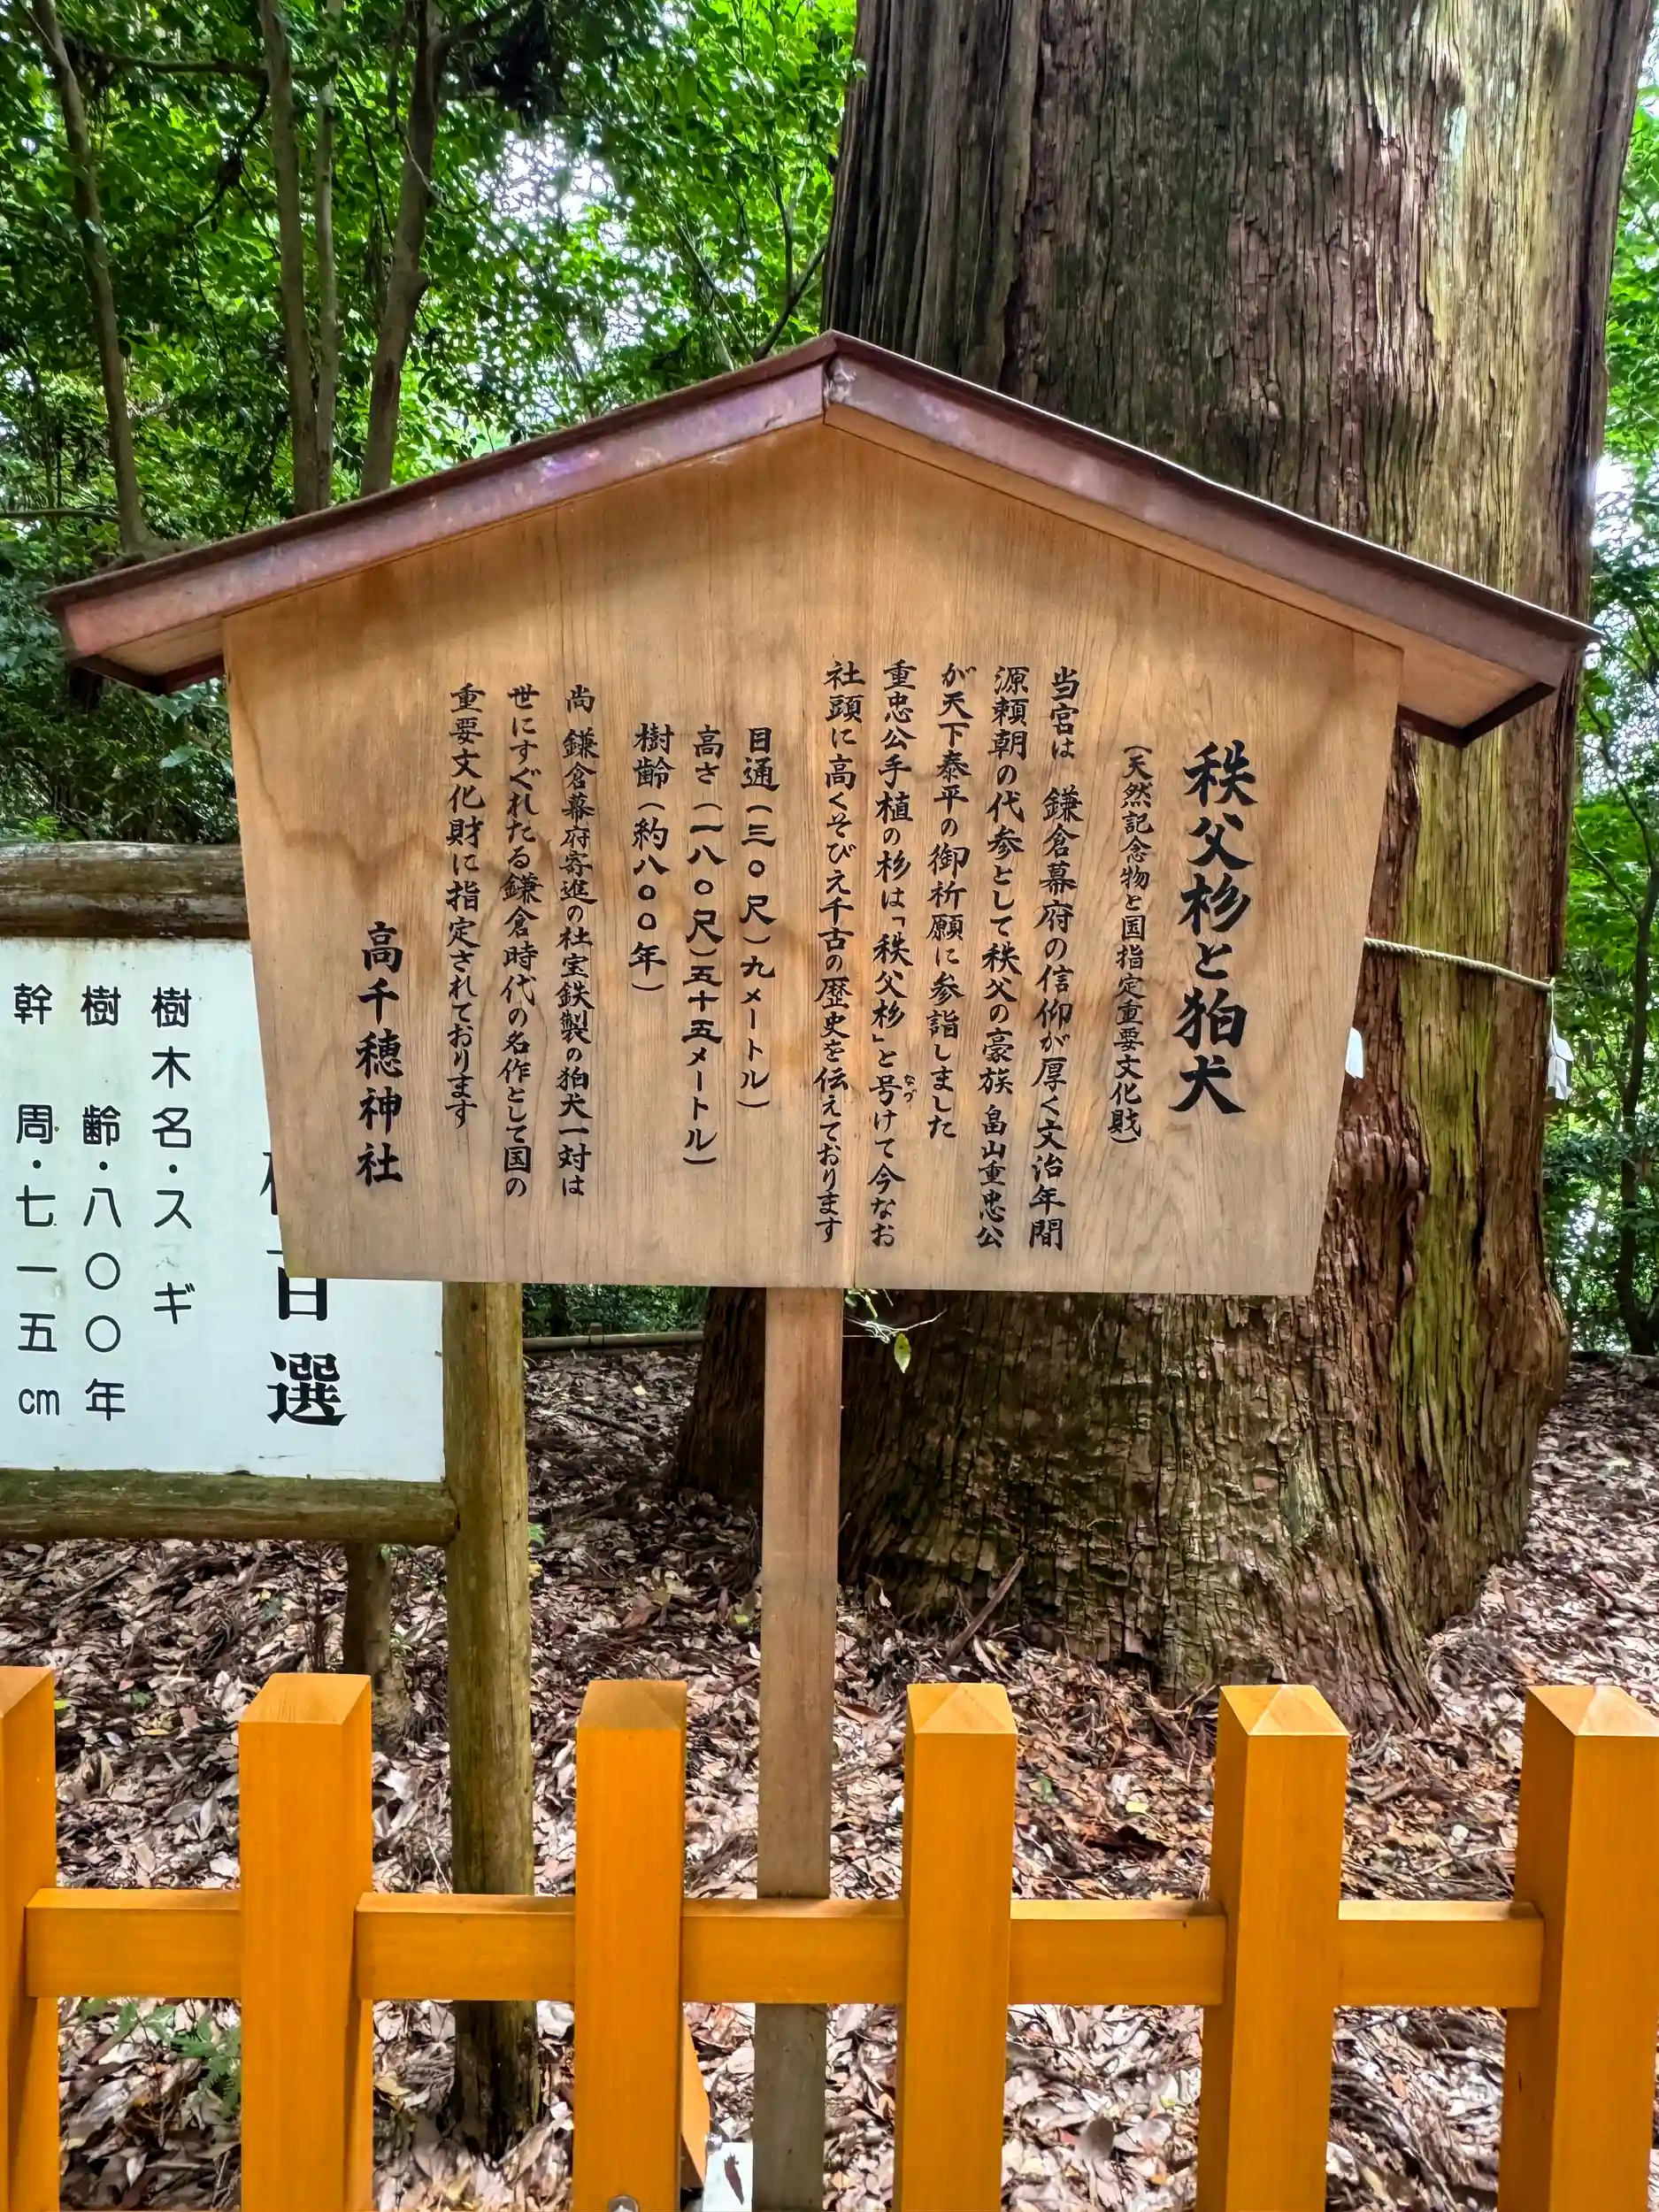 秩父杉と狛犬
(天然記念物と国指定重要文化財)
当宮は 鎌倉幕府の信仰が厚く文治年間
源頼朝の代参として秩父の豪族 畠山重忠公
が天下泰平の御祈願に参詣しました
重忠公手植の杉は「秩父杉」と号けて今なお
なづ
社頭に高くそびえ千古の歴史を伝えております
目通(三〇尺)九メートル)
高さ(一八〇尺)五十五メートル)
樹齢(約八〇〇年)
尚 鎌倉幕府寄進の社宝鉄製の狛犬一対は
世にすぐれたる鎌倉時代の名作として国の
重要文化財に指定されております
高千穂神社
百選
樹木名・スギ
樹齢・八〇〇年
幹周・七一五cm